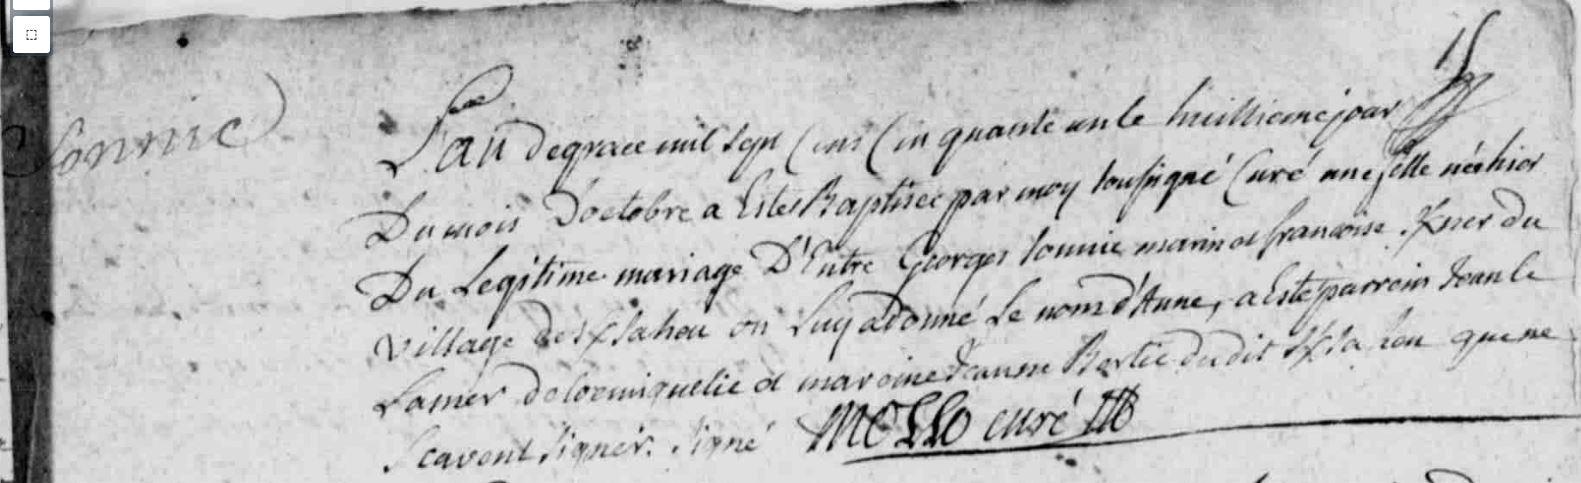 tonnic
L'an de grace mil sept cens cinquante un le huittieme jour
Du mois d'octobre a Estes Baptisee par moy soussigné Curé une fille née hier
Du Legitime mariage D'Entre Georges tonnic marin et francoise du
village de on Luy a donné Le nom d'Anne, a Este parrein Jean le
Lamer de locmiquelic et maroine Jeanne dudit que ne
scavent signer. signé MOLLO curé